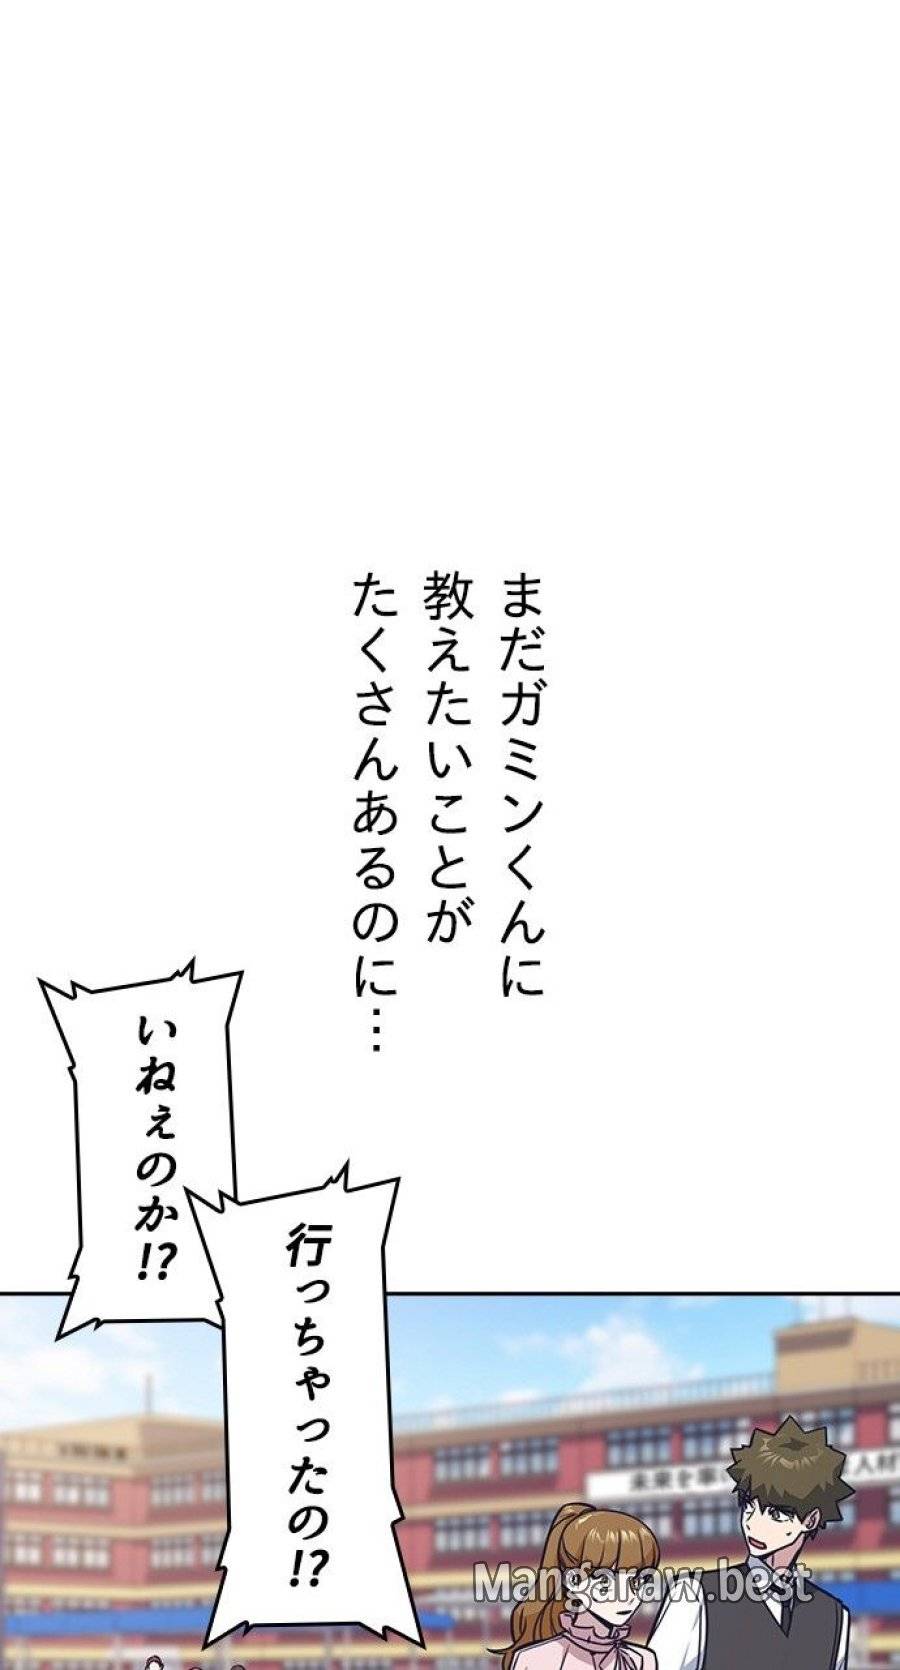 まだガミンくんに
教えたいことが
たくさんあるのに…
行っちゃったの!?
いねぇのか!?
未来を
人材
Mangaraw.best